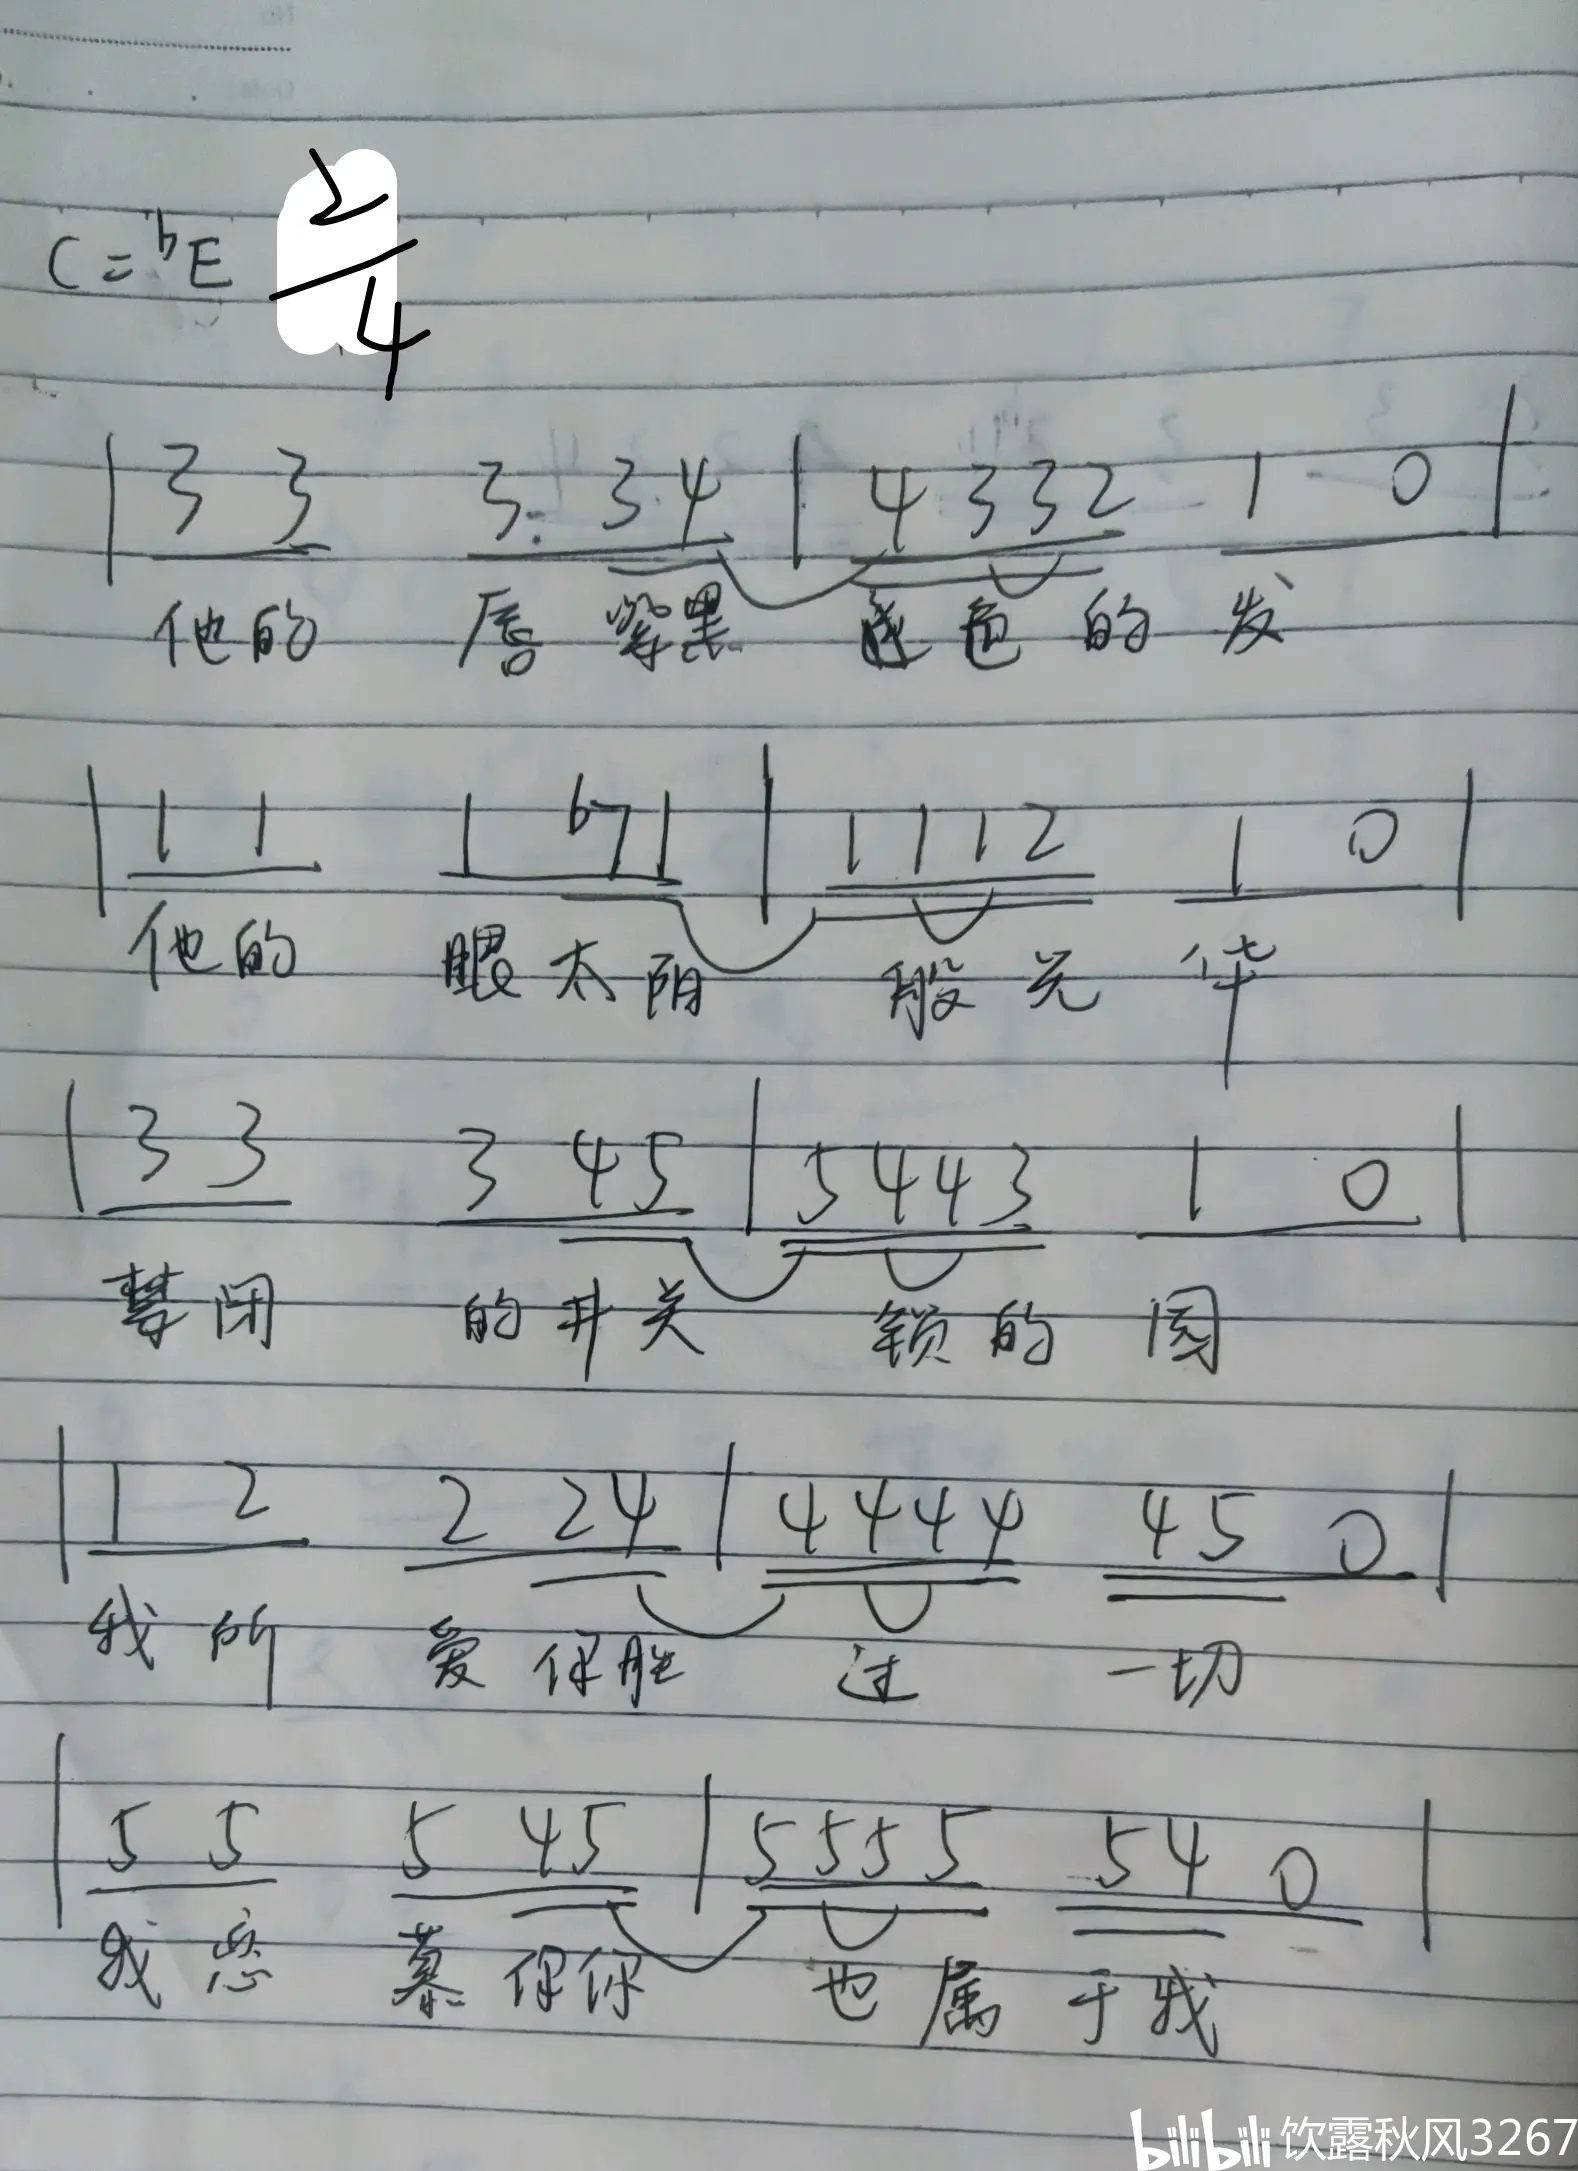 C=ᵇE 2/4
| 3 3 3. 3 4 | 4 3 3 2 1 0 |
他的 唇 嘴黑 色的 发
| 1 1 1 b7 1 | 1 1 1 2 1 0 |
他的 眼太阴 般光 华
| 3 3 3 4 5 | 5 4 4 3 1 0 |
禁闭 的井关 锁的 园
| 1 2 2 2 4 | 4 4 4 4 4 5 0 |
我所 爱你胜 过 一切
| 5 5 5 4 5 | 5 5 5 5 5 4 0 |
我恋 慕你你 也属 于我
bilibili 饮露秋风3267